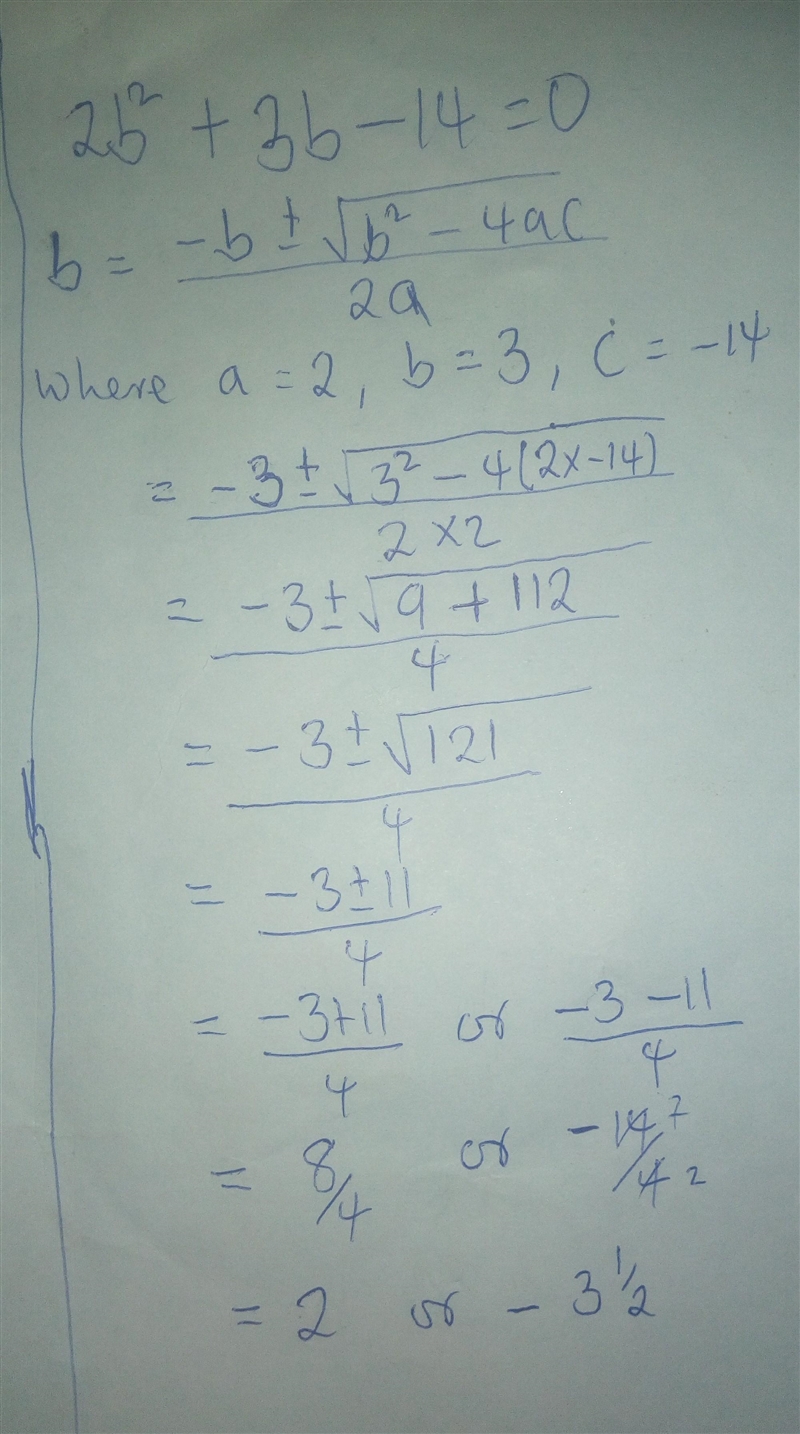 2b² + 3b - 14 = 0
b = -b ± √b² - 4ac
2a
where a = 2, b = 3, c = -14
= -3 ± √3² - 4(2x-14)
2 x 2
= -3 ± √9 + 112
4
= -3 ± √121
4
= -3 ± 11
4
= -3+11 or -3 -11
4 4
= 8/4 or -14 7/4 2
= 2 or - 3 1/2